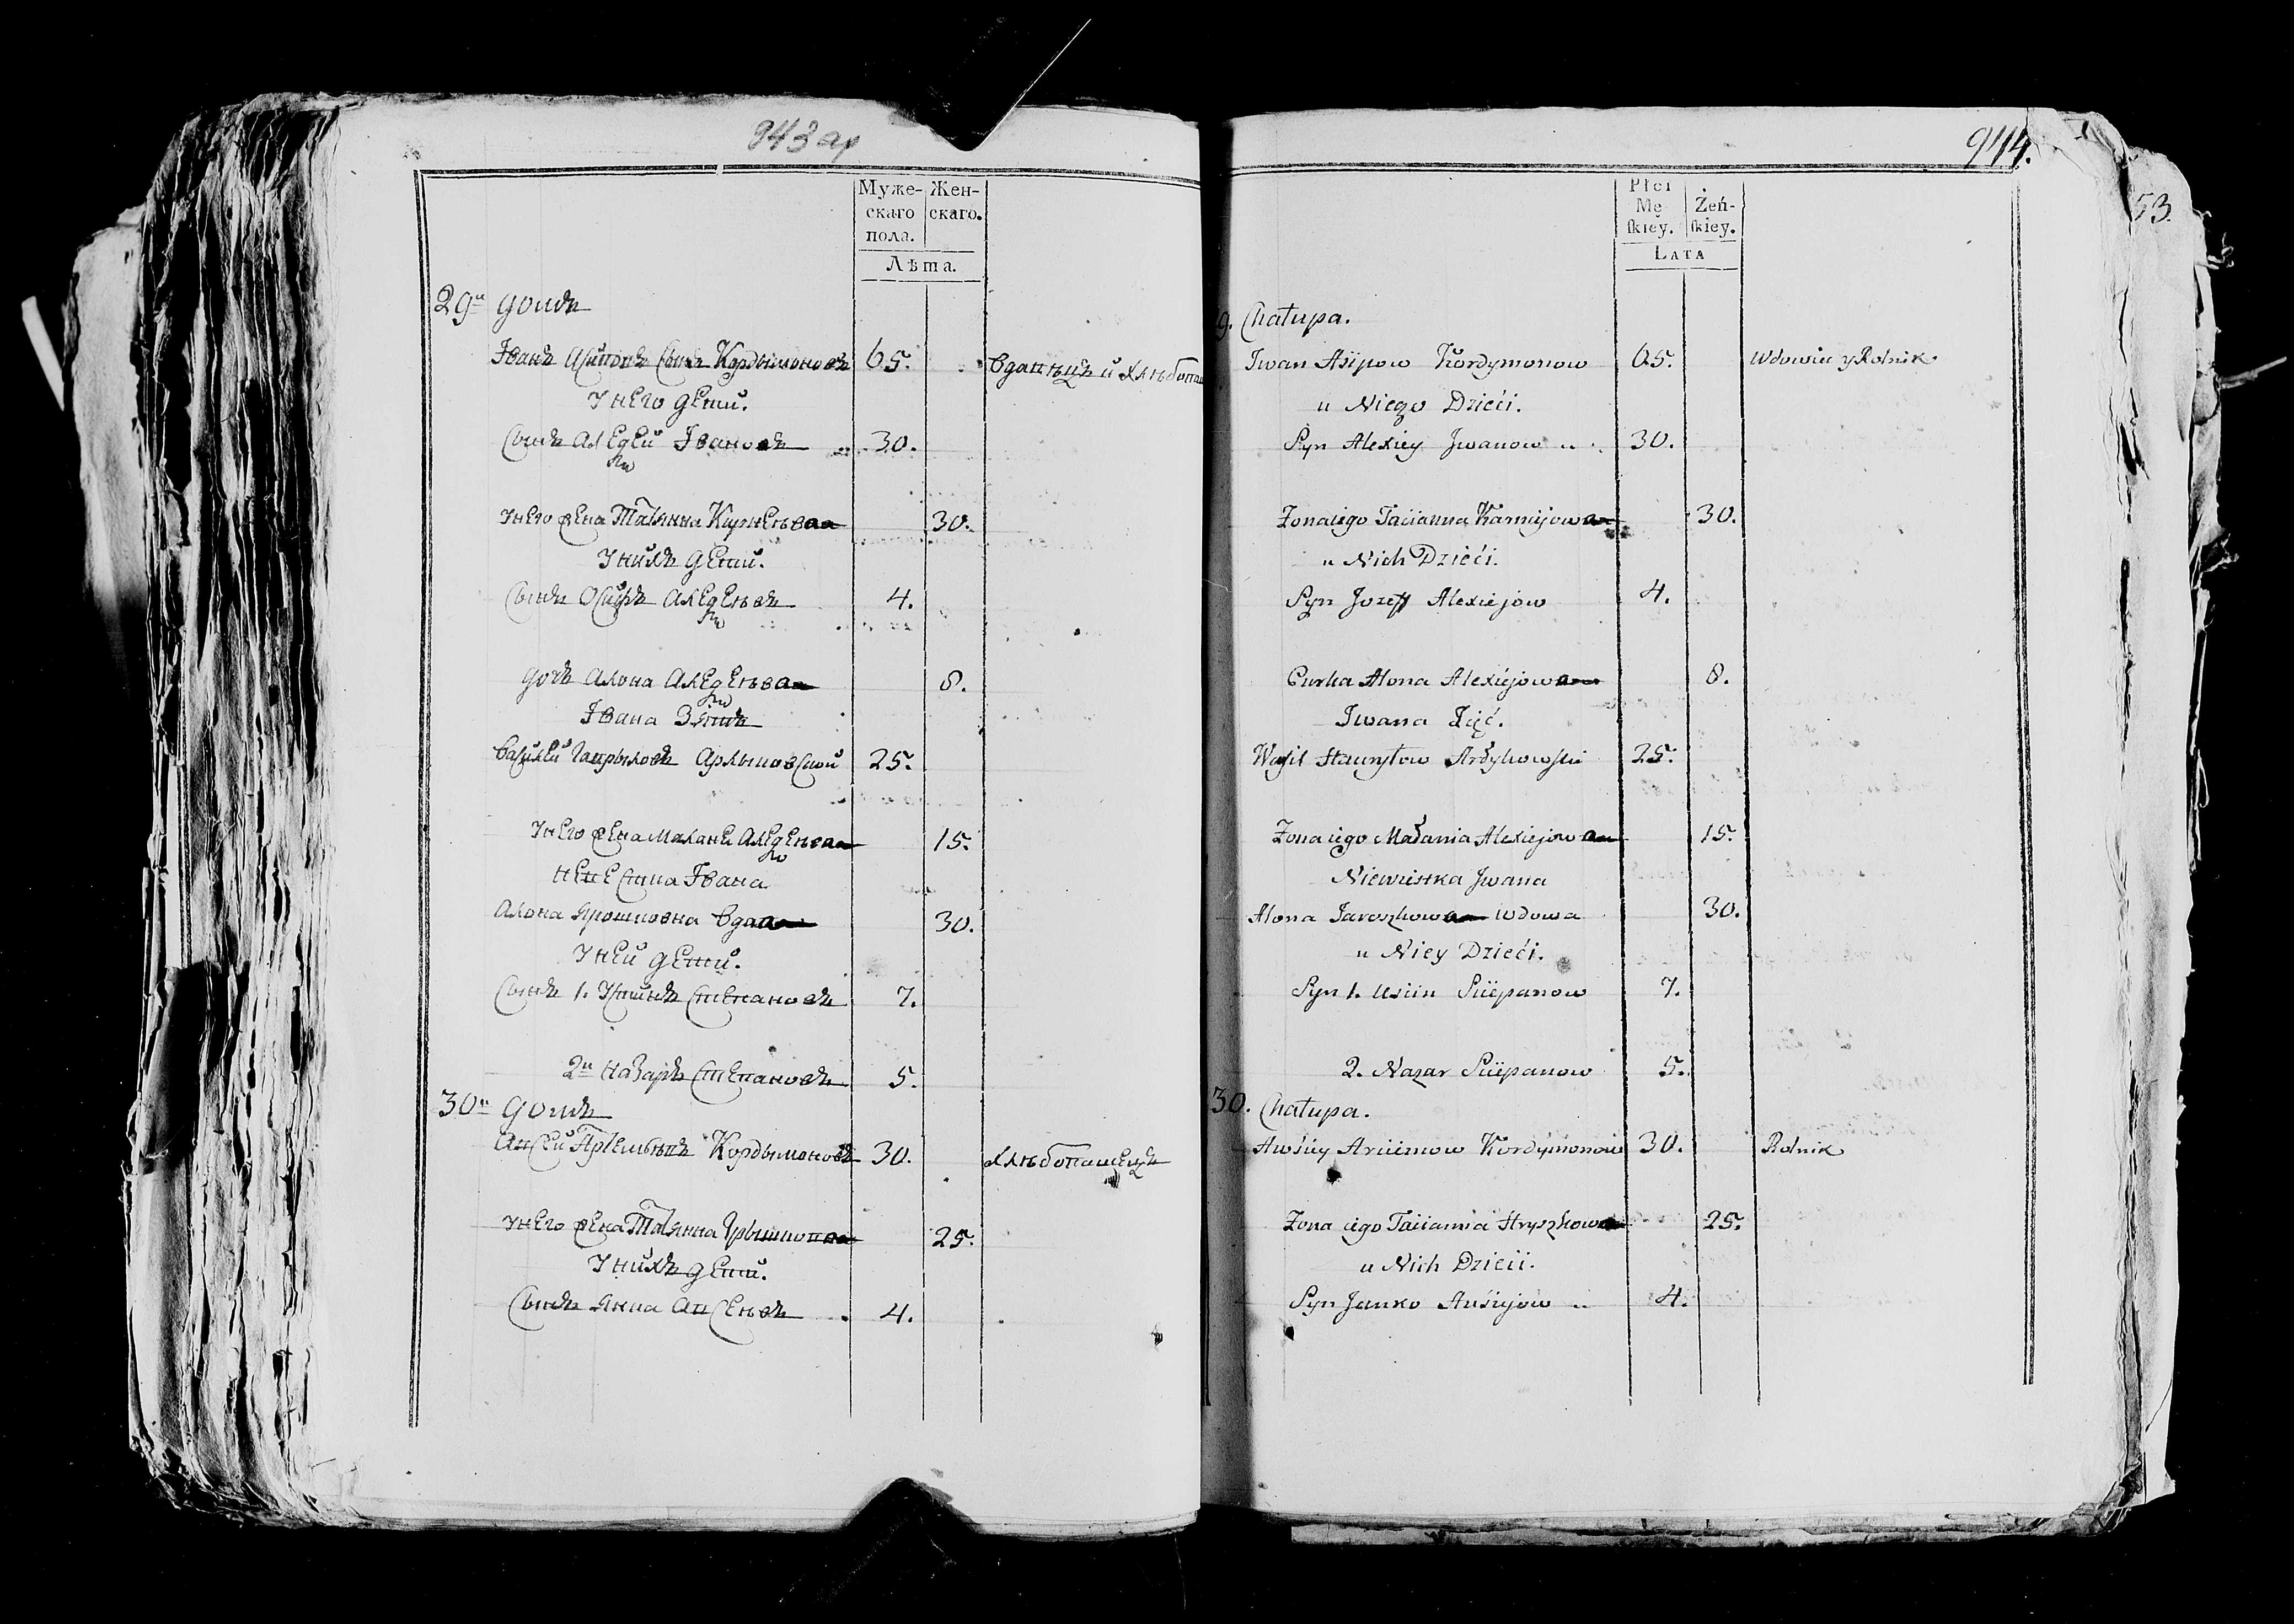 943 ар
Муже-
скаго
пола.
Жен-
скаго.
Лѣта.
29й домъ
Іванъ Асиповъ сынъ Кордымоновъ 65. вдавецъ и хлѣбопа
У него дети.
Сынъ Алеѯей Івановъ 30.
У него жена Татянна 30.
У нихъ дети.
Сынъ Осипъ Алеѯеевъ 4.
дочъ Алона Алеѯеева 8.
Івана Зять
Василей Гаврыловъ 25.
У него жена Малане Алеѯеева 15.
невестка Івана
Алона Ярошковна вдава 30.
У ней дети.
Сынъ 1. Устинъ Степановъ 7.
2й Назаръ Степановъ 5.
30й домъ
Авсей Артемьевъ Кордымоновъ 30. хлѣбопашецъ
У него жена Татянна Грышкова 25.
У нихъ дети.
Сынъ Янка Авсеевъ 4.
944.
53.
Płci
Mę-
skiey.
Żeń-
skiey.
LATA
9. Chałupa.
Iwan Asipow Kordymonow 65. Wdowiec y Rolnik
u Niego Dzieći.
Syn Alexiey Iwanow 30.
Żona iego Tacianna 30.
u Nich Dzieći.
Syn Jozeff Alexiejow 4.
Curka Alona Alexiejowa 8.
Iwana Zięć.
Wasil Hawryłow 25.
Żona iego Małania Alexiejowa 15.
Niewistka Iwana
Alona Jaroszkowa wdowa 30.
u Niey Dzieći.
Syn 1. Uscin Sciepanow 7.
2. Nazar Sciepanow 5.
30. Chałupa.
Awsiey Arciemow Kordymonow 30. Rolnik
Żona iego Taciannia Hryszkowa 25.
u Nich Dzieci.
Syn Janko Ausiejow 4.